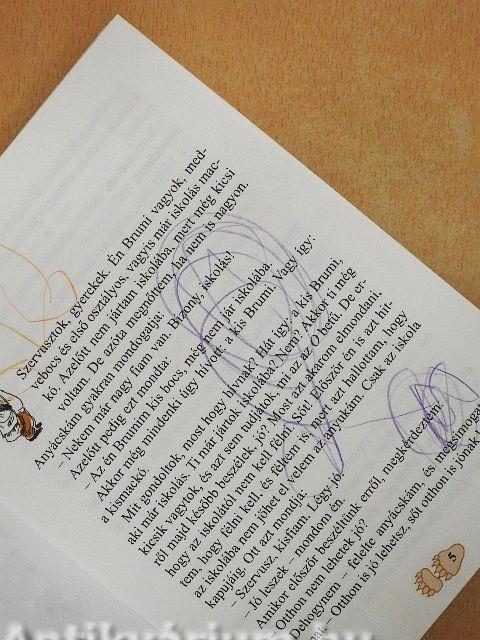 Szervusztok, gyerekek. Én Brumi vagyok, med-
vebocs és első osztályos, vagyis már iskolás mac-
kó. Azelőtt nem jártam iskolába, mert még kicsi
voltam. De azóta megnőttem, ha nem is nagyon.
Anyácskám gyakran mondogatja:
– Nekem már nagy fiam van. Bizony, iskolás!
Azelőtt pedig ezt mondta:
– Az én Brumim kis bocs, még nem jár iskolába.
Akkor még mindenki úgy hívott: a kis Brumi. Vagy így:
a kismackó.
Mit gondoltok, most hogy hívnak? Hát így: a kis Brumi,
aki már iskolás. Ti már jártok iskolába? Nem? Akkor ti még
kicsik vagytok, és azt sem tudjátok, mi az az Óbetű. De er-
ről majd később beszélek, jó? Most azt akarom elmondani,
hogy az iskolától nem kell félni. Sőt! Először én is azt hit-
tem, hogy félni kell, és féltem is, mert azt hallottam, hogy
az iskolába nem jöhet el velem az anyukám. Csak az iskola
kapujáig. Ott azt mondja:
– Szervusz, kisfiam. Légy jó
– Jó leszek – mondom én.
Amikor először beszéltünk erről, megkérdeztem:
Otthon nem lehetek jó?
Dehogynem – felelte anyácskám, és megsimogat
Otthon is jó lehetsz, sőt otthon is jónak
5
Antikvárium.hu